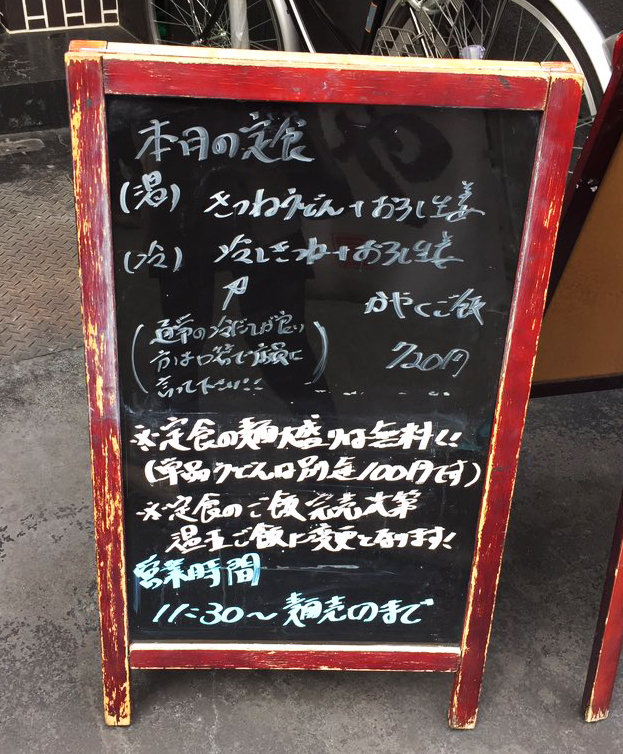 本日の定食
(温) きつねうどん+おろし生姜
(冷) 冷しきつね+おろし生姜
かやくご飯
(通常の冷だしが良い
方は口答で店員に
言って下さい!!)
720円
※定食の麺大盛りは無料!!
(単品うどんは別途100円です)
※定食のご飯完売次第
温玉ご飯に変更となります!
営業時間
11:30〜麺売のまで